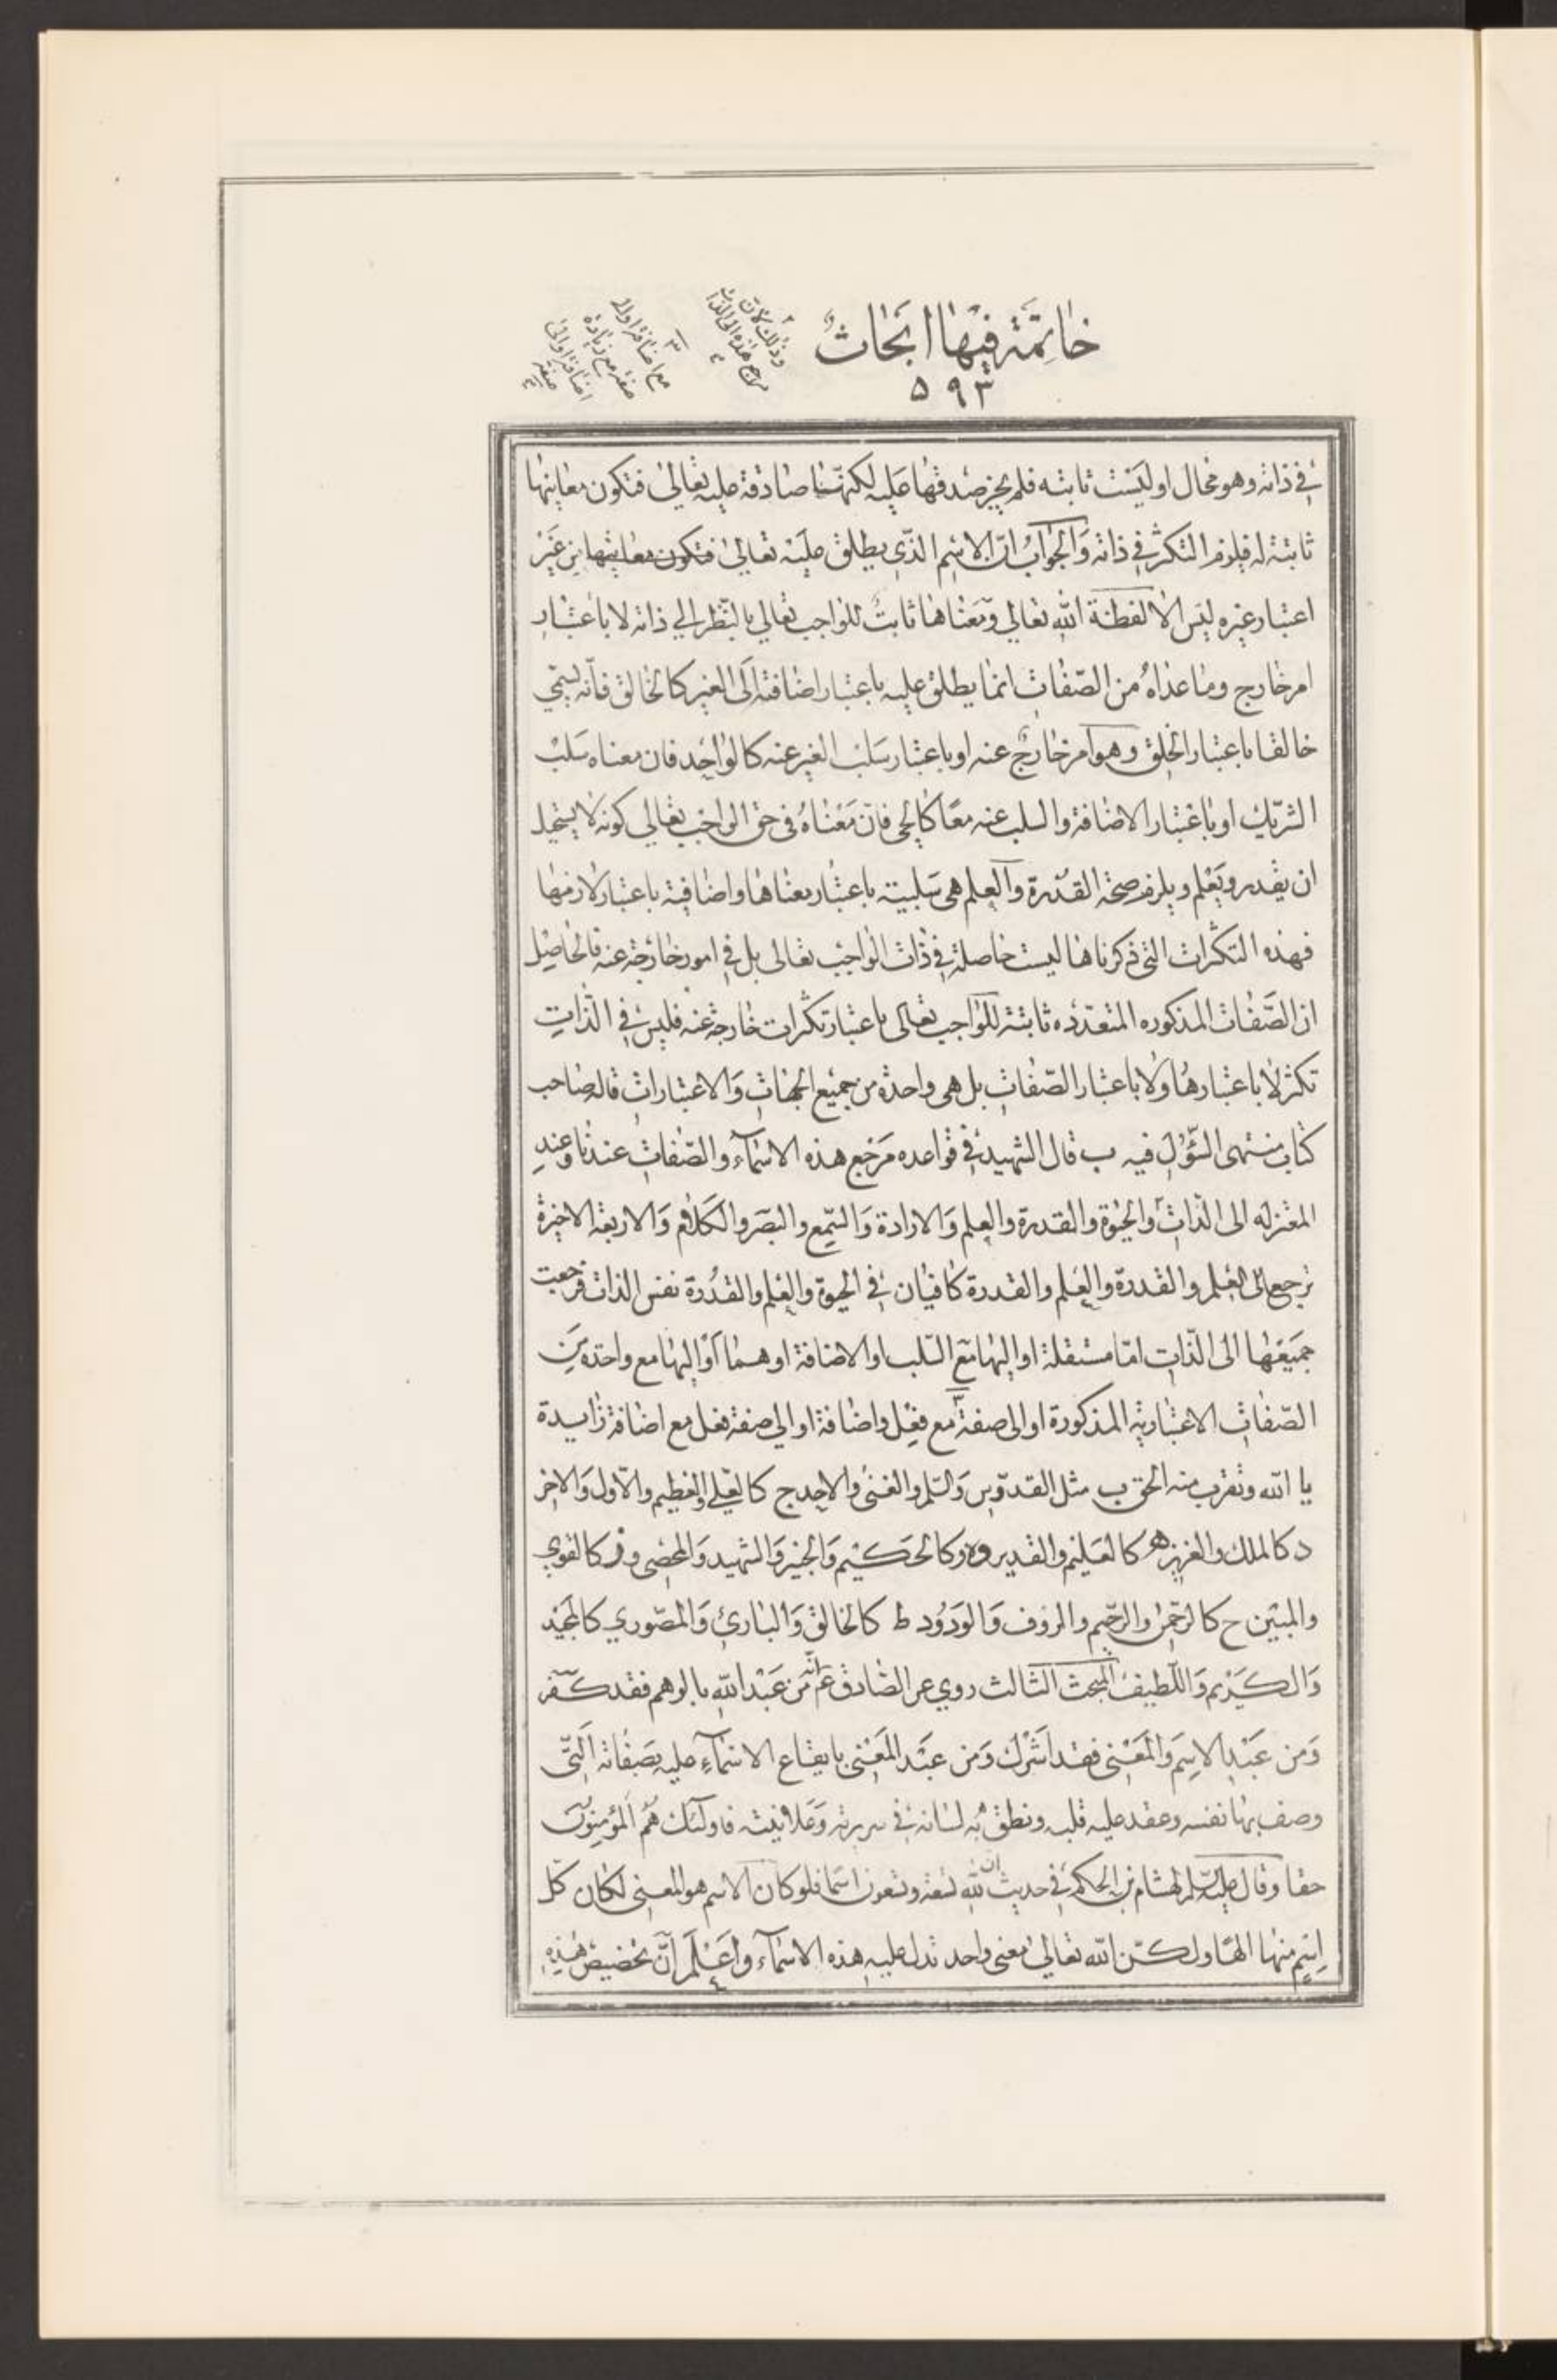 خاتمة فيها ابحاث
٥٩٣
وذلك لان
مرجع هذه الى الذات
مع اضافة او الى
صفة مع زيادة
اضافة او الى
صفة
في ذاته وهو محال او ليست ثابته فلم يجز صدقها عليه لكنها صادقة عليه تعالى فتكون معانيها
ثابتة له فيلزم التكثر في ذاته والجواب ان الاسم الذي يطلق عليه تعالى فتكون معانيها من غير
اعتبار غيره ليس الا لفظة الله تعالى ومعناها ثابت للواجب تعالى بالنظر الى ذاته لا باعتبار
امر خارج وما عداه من الصفات انما يطلق عليه باعتبار اضافته الى الغير كالخالق فانه يسمى
خالقا باعتبار الخلق وهو امر خارج عنه او باعتبار سلب الغير عنه كالواحد فان معناه سلب
الشريك او باعتبار الاضافة والسلب عنه معا كالحي فان معناه في حق الواجب تعالى كونه لا يستحيل
ان يقدر ويعلم ويلزمه صحة القدرة والعلم هي سلبية باعتبار معناها واضافية باعتبار لازمها
فهذه التكثرات التي ذكرناها ليست حاصلة في ذات الواجب تعالى بل في امور خارجة عنه فالحاصل
ان الصفات المذكوره المتعدده ثابتة للواجب تعالى باعتبار تكثرات خارجة عنه فليس في الذات
تكثر لا باعتبارها ولا باعتبار الصفات بل هي واحدة من جميع الجهات والاعتبارات قاله صاحب
كتاب منتهى السؤل فيه ب قال الشهيد في قواعده مرجع هذه الاسماء والصفات عندنا وعند
المعتزله الى الذات والحيوة والقدرة والعلم والارادة والسمع والبصر والكلام والاربعة الاخيرة
ترجع الى العلم والقدرة والعلم والقدرة كافيان في الحيوة والعلم والقدرة نفس الذات فرجعت
جميعها الى الذات اما مستقلة او اليها مع السلب او الاضافة او هما او اليها مع واحده من
الصفات الاعتبارية المذكورة او الى صفة مع فعل واضافة او الى صفة فعل مع اضافة زايدة
يا الله وتقرب منه الحق ب مثل القدوس والسلم والغنى والاحد ج كالعلي والعظيم والاول والاخر
د كالملك والعزيز ه كالعليم والقدير و كالحكيم والخبير والشهيد والمحصى و ز كالقوي
والمبين ح كالرحمن والرحيم والروف والودود ط كالخالق والبارئ والمصور ي كالمجيد
والكريم واللطيف المبحث الثالث روي عن الصادق ع انه من عبد الله بالوهم فقد كفر
ومن عبد الاسم والمعنى فقد اشرك ومن عبد المعنى بايقاع الاسماء عليه بصفاته التي
وصف بها نفسه وعقد عليه قلبه ونطق به لسانه في سريرته وعلانيته فاولئك هم المؤمنون
حقا وقال عليه السلم لهشام بن الحكم في حديث ان لله تسعة وتسعون اسما فلو كان الاسم هو المعنى لكان كل
اسم منها الها ولكن الله تعالى معنى واحد تدل عليه هذه الاسماء واعلم ان تخصيص هذه